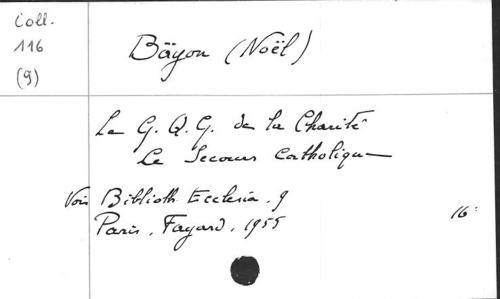 Coll.
116
(9)
Bayon (Noël)
Le G. Q. G. de la Charité
Le Secours Catholique
Voir Biblioth. Ecclesia. 9
Paris, Fayard, 1955
16°